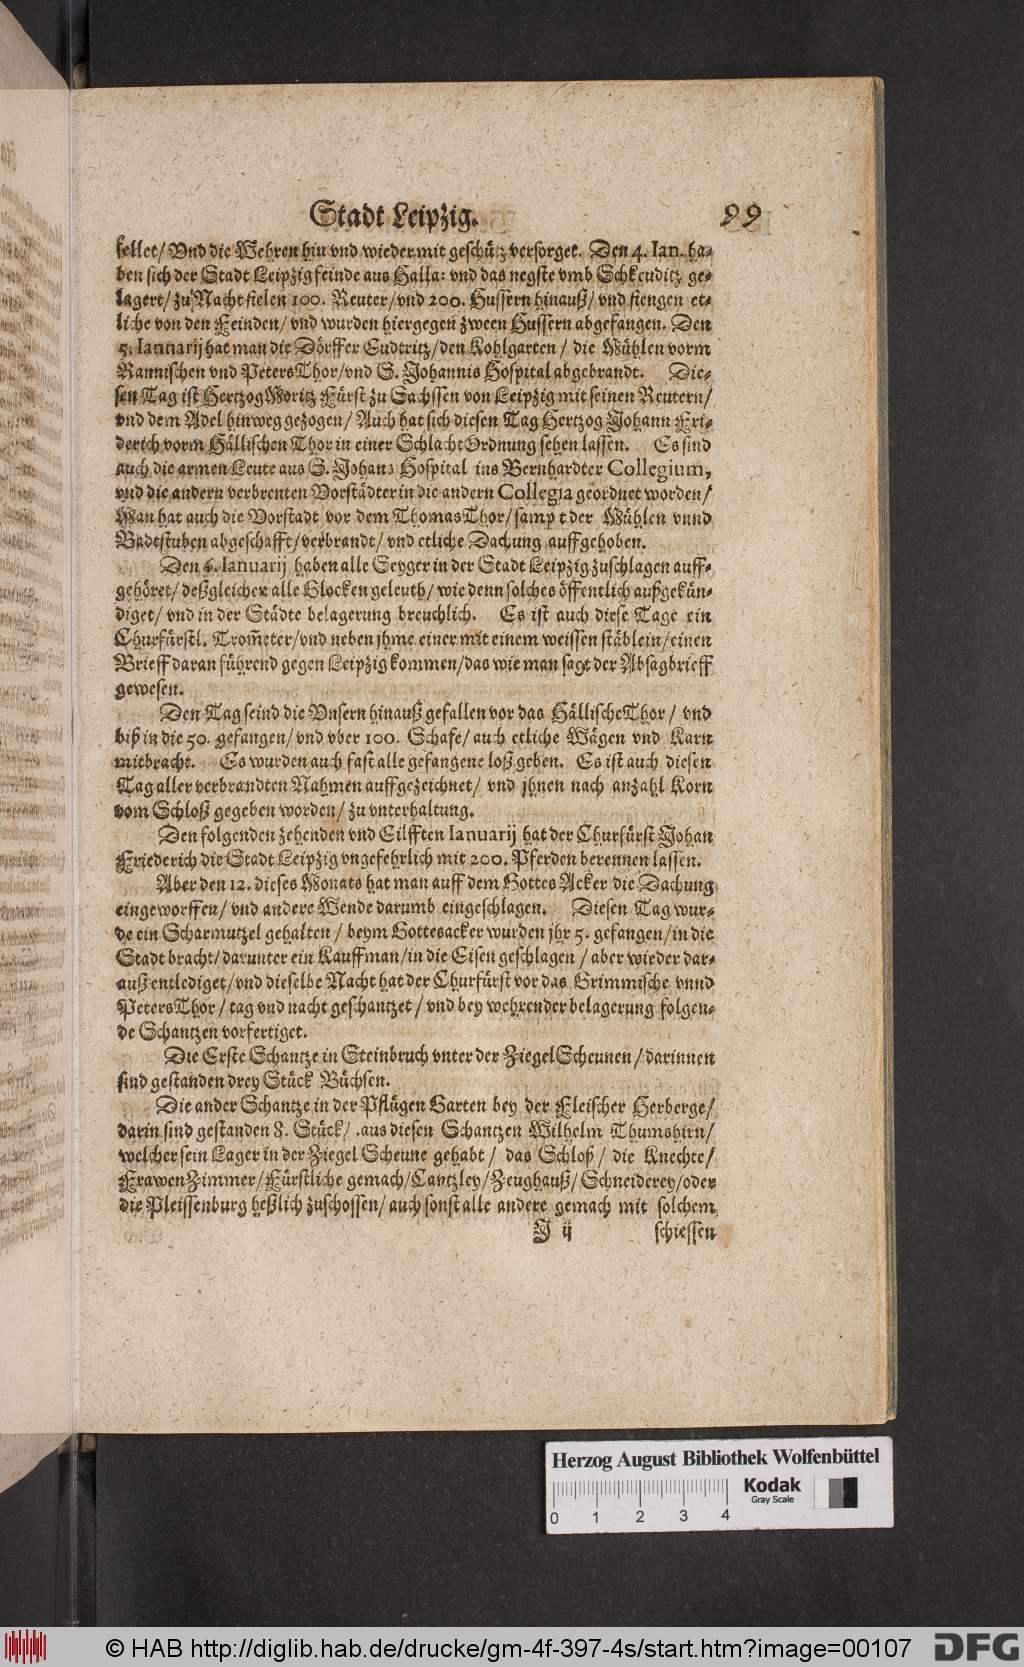 Stadt Leipzig. 99
fellet/ Vnd die Wehren hin vnd wieder mit geschütz versorget. Den 4. Ian. ha-
ben sich der Stadt Leipzig feinde aus Halla: vnd das negste vmb Schkeuditz ge-
lagert/ zu Nacht fielen 100. Reuter/ vnd 200. Hussern hinauß/ vnd fiengen et-
liche von den Feinden/ vnd wurden hiergegen zween Hussern abgefangen. Den
5. Ianuarij hat man die Dörffer Eudtritz/ den Kohlgarten / die Mühlen vorm
Rannischen vnd Peters Thor/ vnd S. Johannis Hospital abgebrandt. Die-
sen Tag ist Hertzog Moritz Fürst zu Sachssen von Leipzig mit seinen Reutern/
vnd dem Adel hinweg gezogen/ Auch hat sich diesen Tag Hertzog Johann Fri-
derich vorm Hällischen Thor in einer Schlacht Ordnung sehen lassen. Es sind
auch die armen Leute aus S. Johans Hospital ins Bernhardter Collegium,
vnd die andern verbrenten Vorstädter in die andern Collegia geordnet worden/
Man hat auch die Vorstadt vor dem Thomas Thor/ sampt der Mühlen vnnd
Badtstuben abgeschafft/ verbrandt/ vnd etliche Dachung auffgehoben.
Den 6. Ianuarij haben alle Seyger in der Stadt Leipzig zuschlagen auff-
gehöret/ deßgleichen alle Glocken geleuth/ wie denn solches öffentlich außgekün-
diget/ vnd in der Städte belagerung breuchlich. Es ist auch diese Tage ein
Churfürstl. Trom̃eter/ vnd neben jhme einer mit einem weissen stäblein/ einen
Brieff daran führend gegen Leipzig kommen/ das wie man sagt der Absagbrieff
gewesen.
Den Tag seind die Vnsern hinauß gefallen vor das Hällische Thor / vnd
biß in die 50. gefangen/ vnd vber 100. Schafe/ auch etliche Wägen vnd Karn
mitbracht. Es wurden auch fast alle gefangene loß geben. Es ist auch diesen
Tag aller verbrandten Nahmen auffgezeichnet/ vnd jhnen nach anzahl Korn
vom Schloß gegeben worden/ zu vnterhaltung.
Den folgenden zehenden vnd Eilfften Ianuarij hat der Churfürst Johan
Friederich die Stadt Leipzig vngefehrlich mit 200. Pferden berennen lassen.
Aber den 12. dieses Monats hat man auff dem Gottes Acker die Dachung
eingeworffen/ vnd andere Wende darumb eingeschlagen. Diesen Tag wur-
de ein Scharmutzel gehalten / beym Gottesacker wurden jhr 5. gefangen/ in die
Stadt bracht/ darunter ein Kauffman/ in die Eisen geschlagen / aber wieder dar-
auß entlediget/ vnd dieselbe Nacht hat der Churfürst vor das Grimmische vnnd
Peters Thor / tag vnd nacht geschantzet / vnd bey wehrender belagerung folgen-
de Schantzen vorfertiget.
Die Erste Schantze in Steinbruch vnter der Ziegel Scheunen / darinnen
sind gestanden drey Stück Büchsen.
Die ander Schantze in der Pflügen Garten bey der Fleischer Herberge/
darin sind gestanden 8. Stück/ .aus diesen Schantzen Wilhelm Thumshirn/
welcher sein Lager in der Ziegel Scheune gehabt / das Schloß / die Knechte/
Frawen Zimmer/ Fürstliche gemach/ Cantzley/ Zeughauß/ Schneiderey/ oder
die Pleissenburg heßlich zuschossen/ auch sonst alle andere gemach mit solchem
J ij schiessen
Herzog August Bibliothek Wolfenbüttel
Kodak
Gray Scale
0 1 2 3 4
© HAB http://diglib.hab.de/drucke/gm-4f-397-4s/start.htm?image=00107 DFG